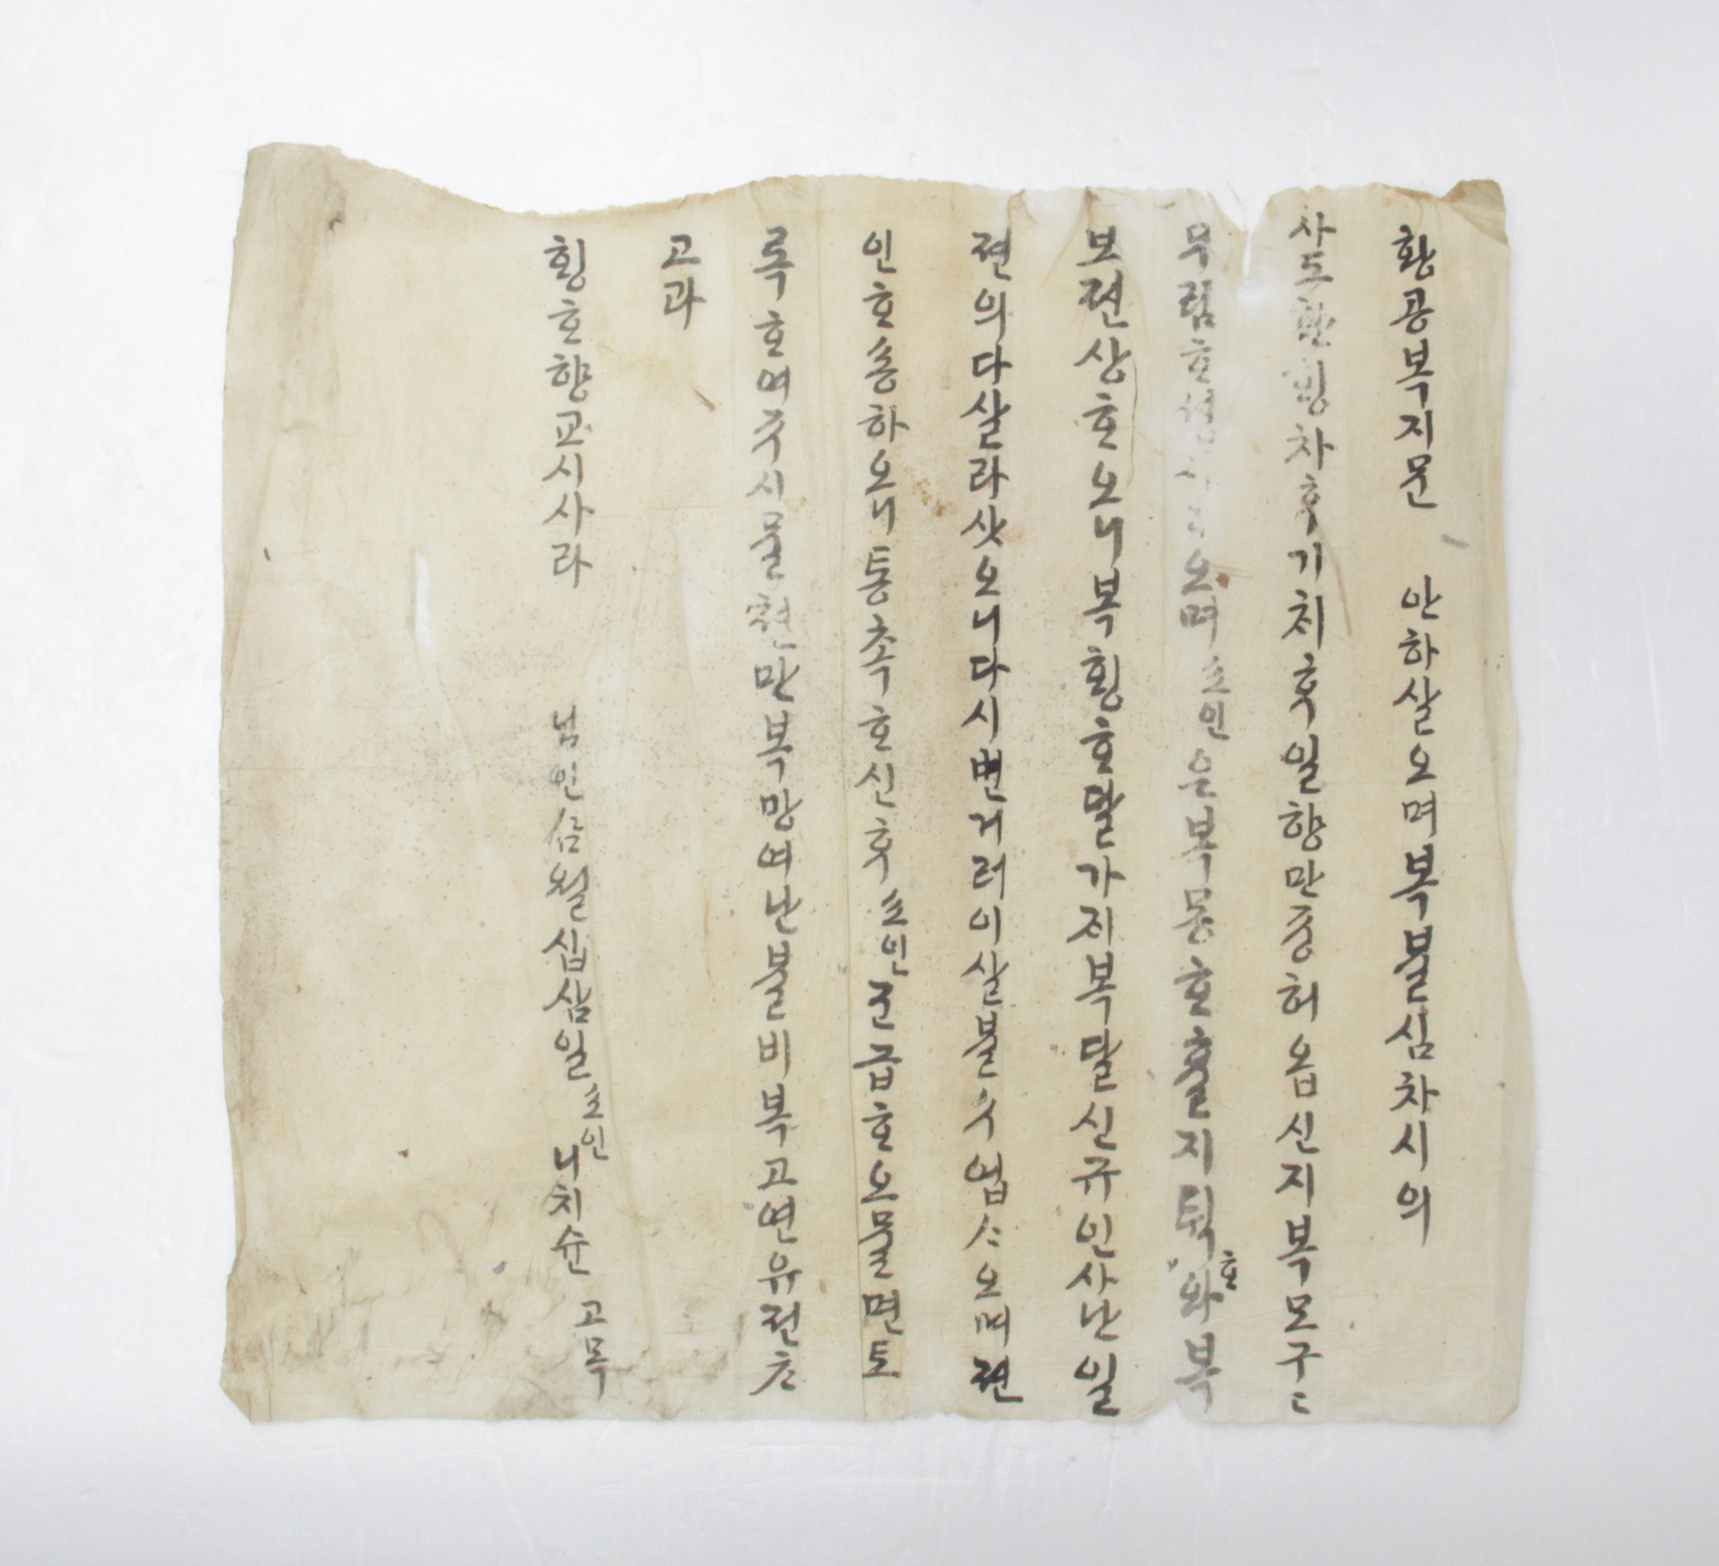 황공복지문 안하살오며복불심차시의
사도 힝차후기쳬후일향만즁허옵신지복모구구
무림호 오며소인은복몽호휼지퇵호와복
보젼상호오니복힝호말가지복달신규인사난일
젼의다살라삿오니다시번거러이살불수업亽오며젼
인호송하오니통촉호신후소인쥰급호오물면토
록호여주시물쳔만복망여난불비복고연유젼초
고과
힝호향교시사라
님인 금월십삼일소인니치슌 고목